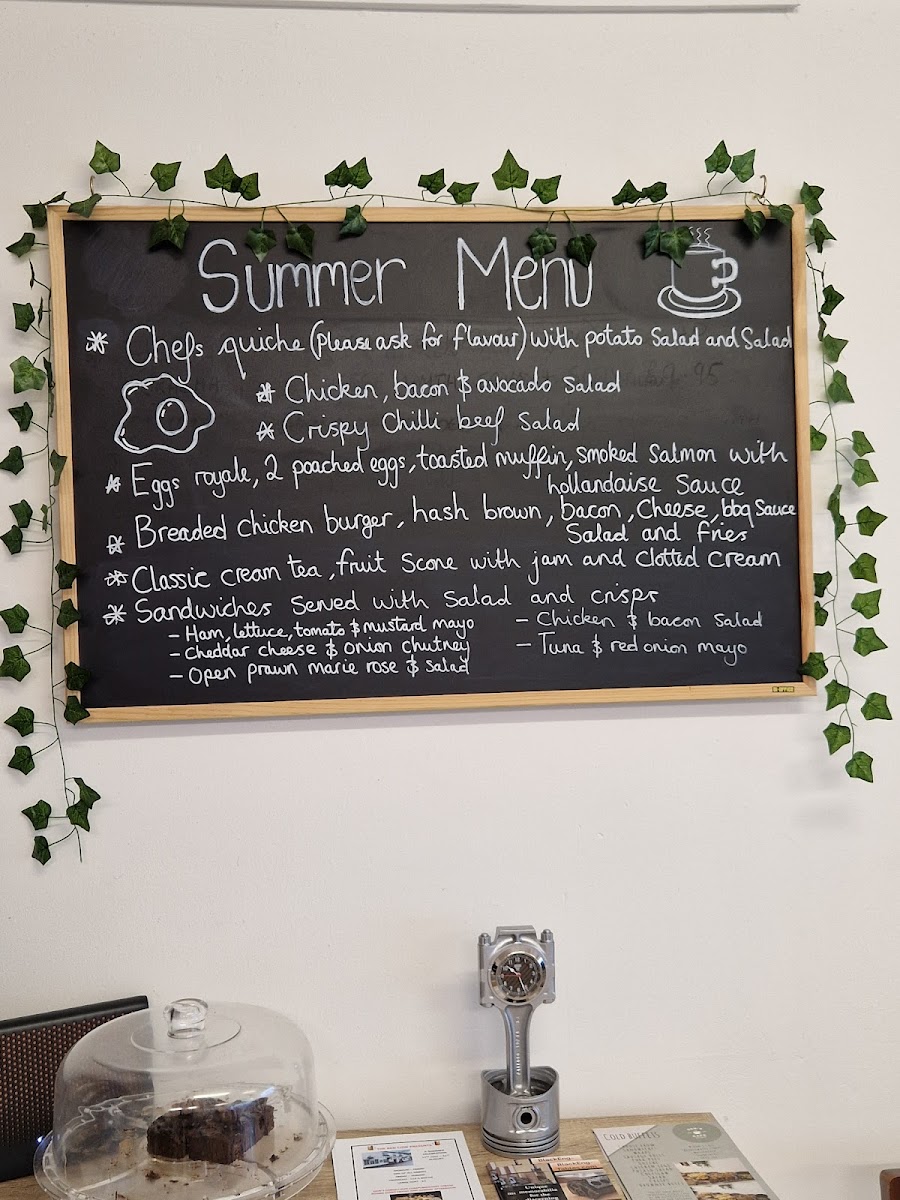 Summer Menu
* Chefs quiche (please ask for flavour) with potato Salad and Salad
* Chicken, bacon & avocado Salad
* Crispy Chilli beef Salad
* Eggs royale, 2 poached eggs, toasted muffin, smoked Salmon with
hollandaise Sauce
* Breaded chicken burger, hash brown, bacon, Cheese, bbq Sauce
Salad and fries
* Classic cream tea, fruit Scone with jam and Clotted Cream
* Sandwiches Served with Salad and crisps
- Ham, lettuce, tomato & mustard mayo
- Cheddar cheese & onion chutney
- Open prawn marie rose & salad
- Chicken & bacon Salad
- Tuna & red onion mayo
COLD BUFFETS
Unique
memorabilia
for the